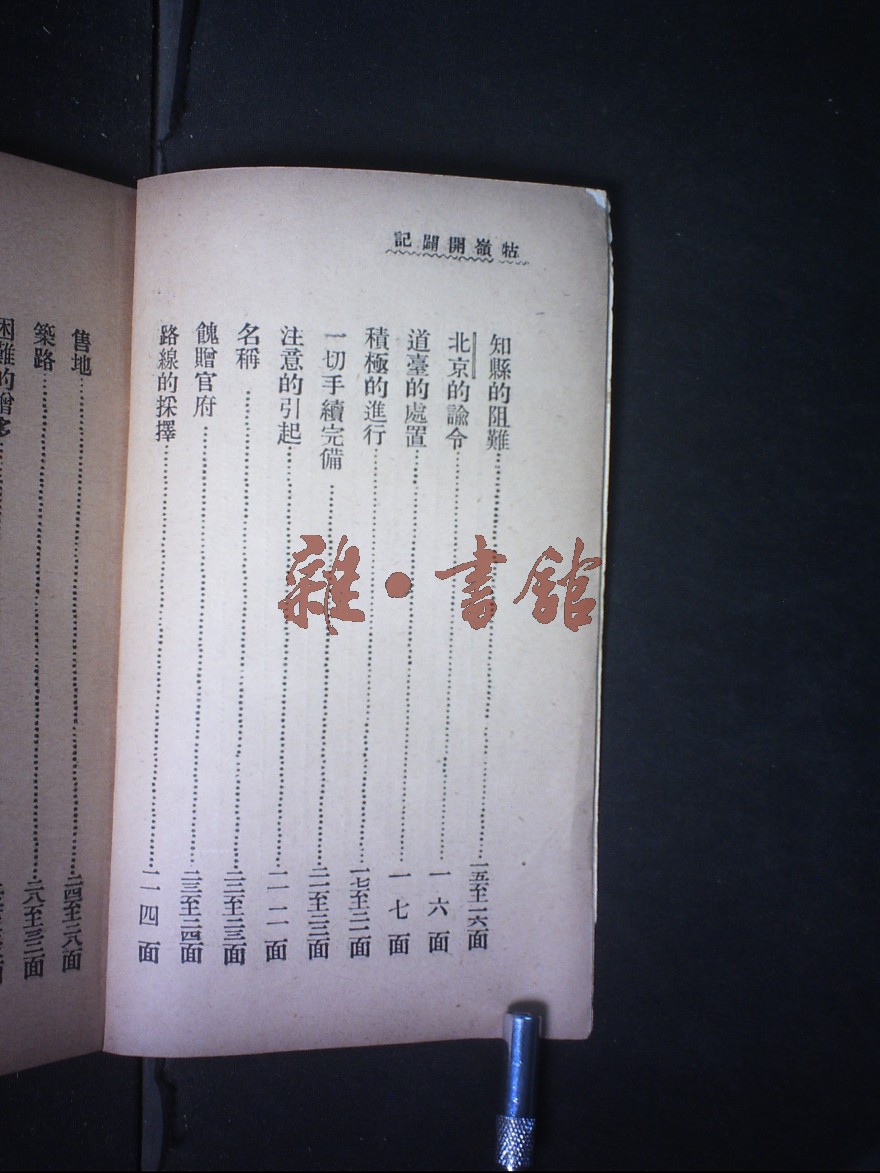 牯嶺開闢記
知縣的阻難……一五至一六面
北京的諭令……一六面
道臺的處置……一七面
積極的進行……一七至二一面
一切手續完備……二一至二二面
注意的引起……二二面
名稱……二二至二三面
餽贈官府……二三至二四面
路線的採擇……二四面
售地……二四至二八面
築路……二八至三二面
困難的增多……
雜・書館